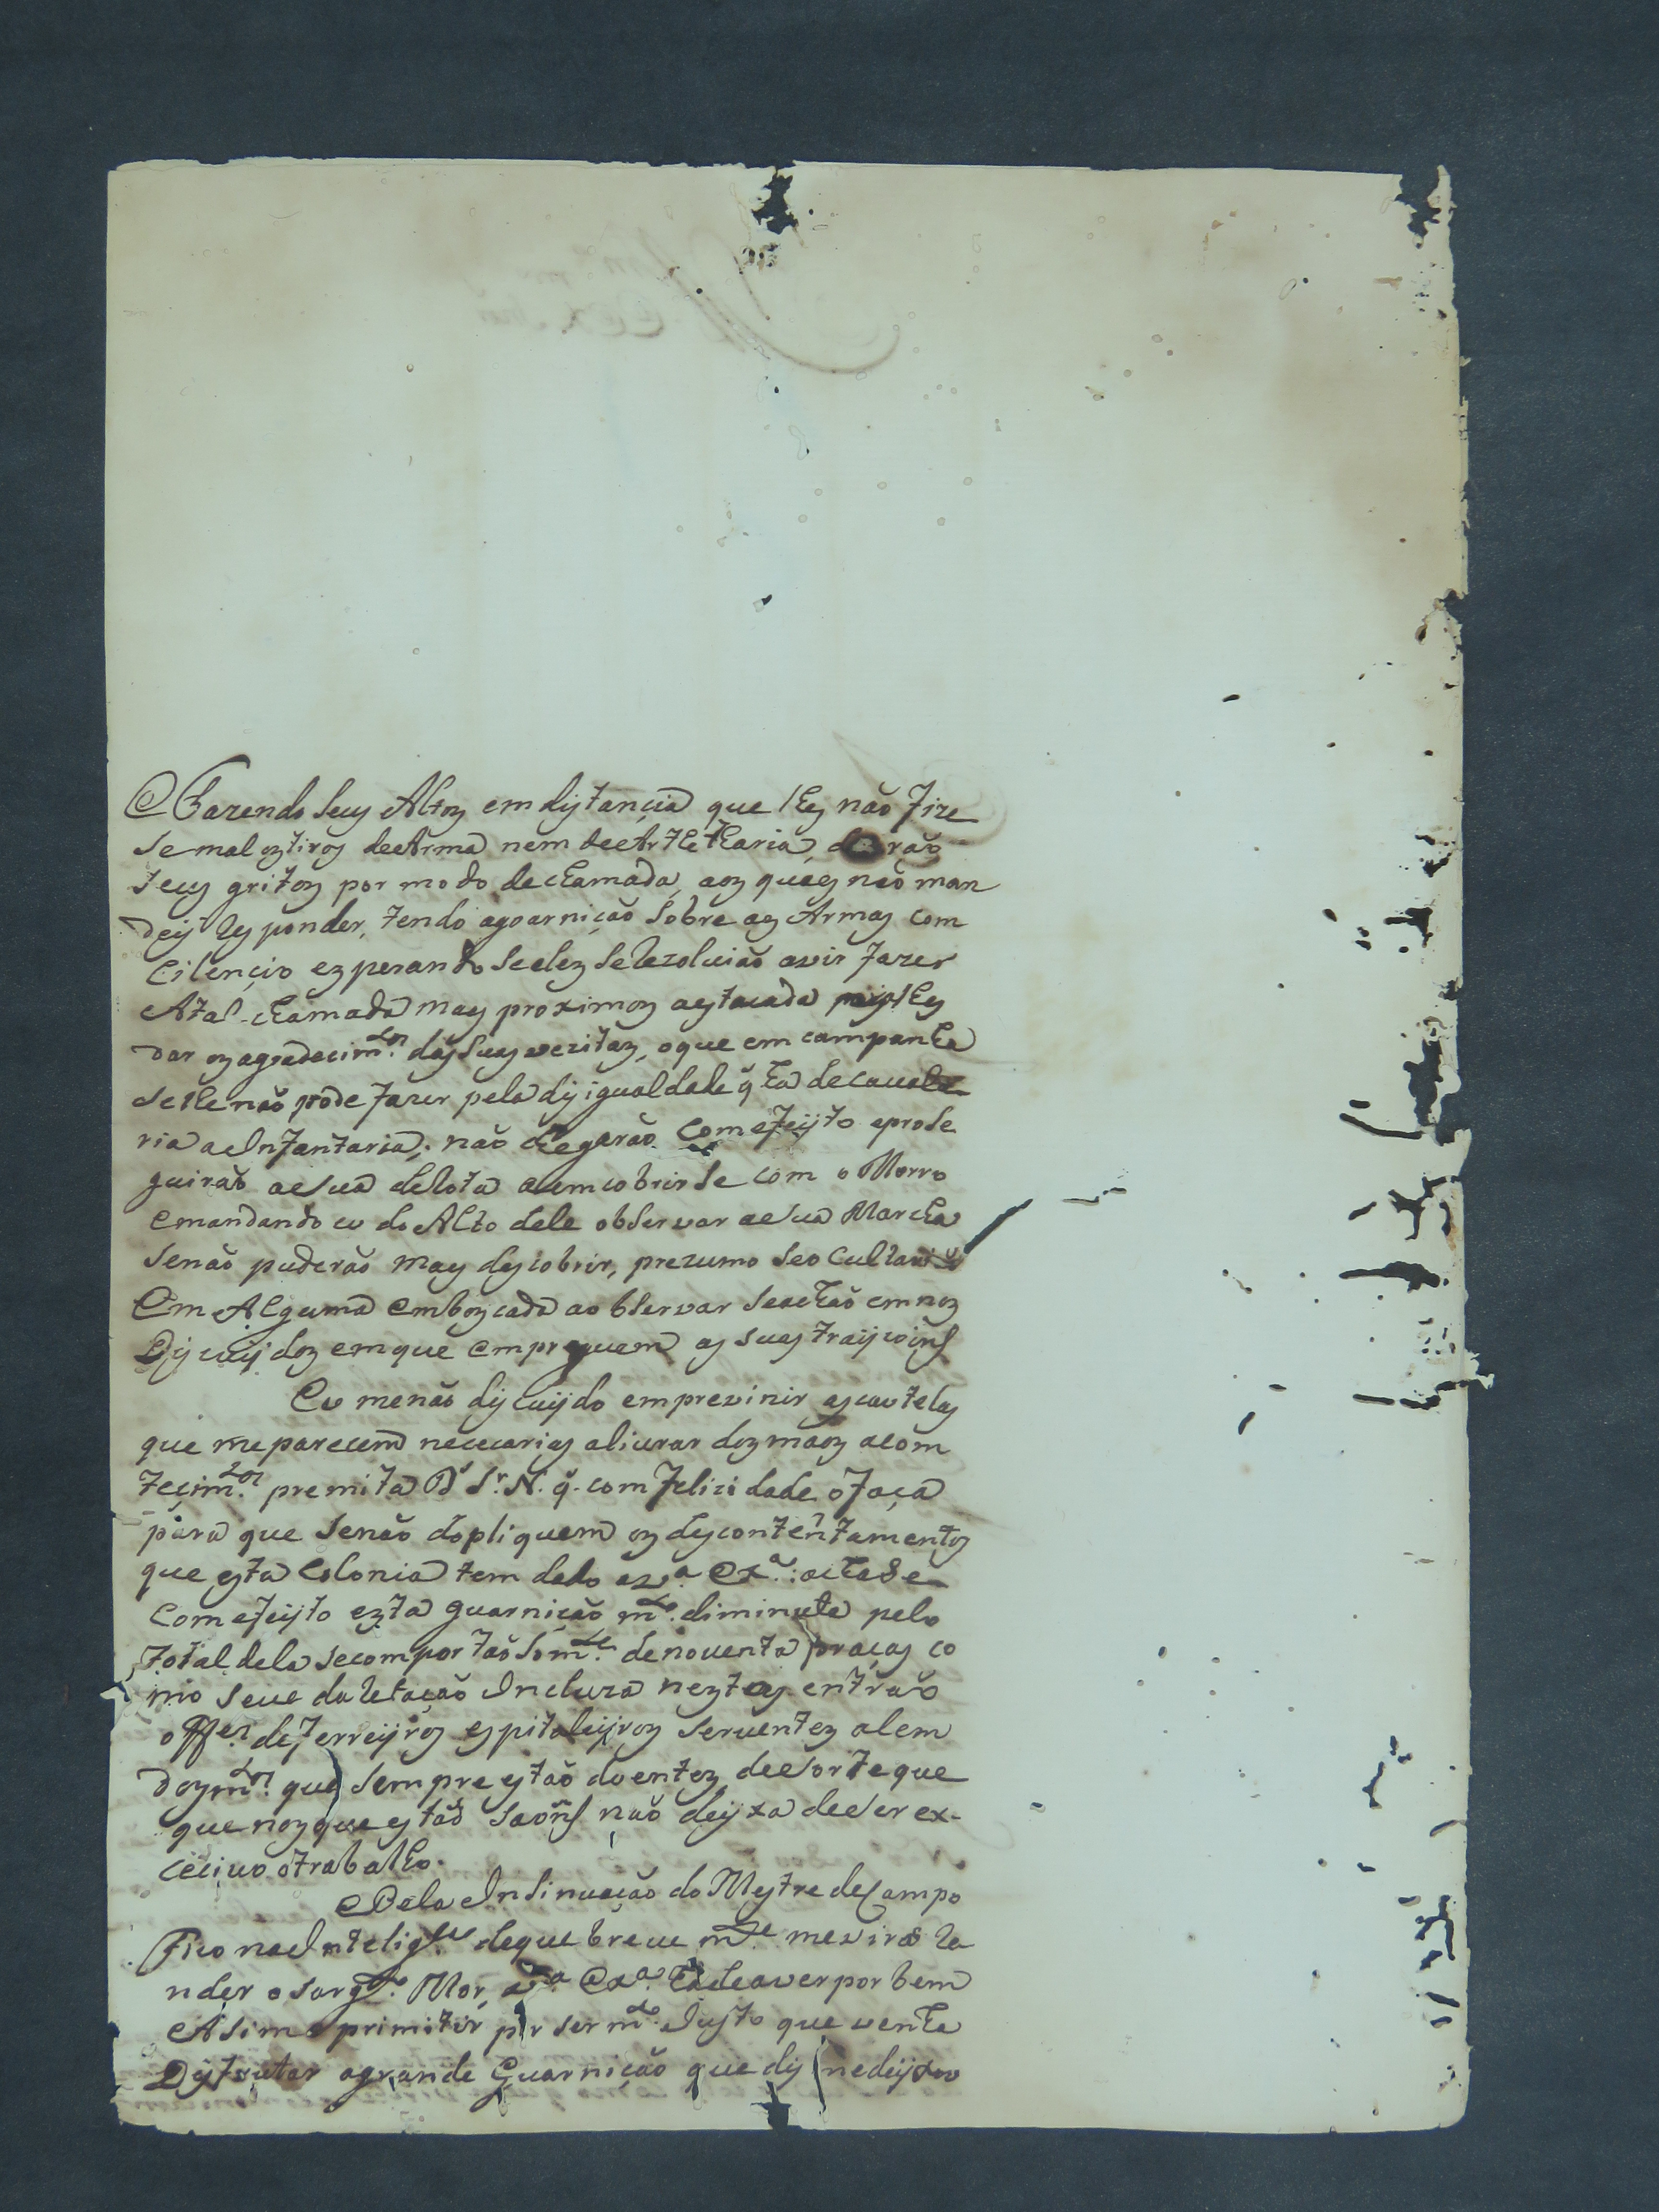 Fazendo seus Altos em distancia que lhes não fize
se mal os tiros de Arma nem de Artelharia, derão
seus gritos por modo de chamada, aos quaes não man
dey Responder, tendo agoarnição Sobre as Armas com
Cilençio esperando se eles se Rezolvião avir fazer
Atal chamada mais proximos aestacada
dar os agradecim.tos das suas vezitas, oque em campanha
se lhe não pode fazer pela disigualdade q̃ ha de cavala
ria a Infantaria; não chegarão com efeyto eprose
guirão asua derota aemcobrirse com o Morro
emandando eu do Alto dele observar asua Marcha
senão puderão mais descobrir, prezumo seocultarião
Em Alguma emboscada aobservar seachão em nos
Discuydos em que empreguem as suas trayçoins
Eu menão discuydo emprevinir as cautelas
que me parecem nececarias alivrar dos máos acom
tecim.tos premita Ds Sr. N. q. com felicidade ofaça
para que senão dopliquem os descontentamentos
que esta Colonia tem dado a V.a Ex.a: achase
com efeyto esta guarnição m.to diminuta pelo
total dela secomportão som.te de noventa praças co
mo seve da Relação Incluza nestas entrão
off.es desferreyros espitaleyros serventes alem
dos m.tos que sempre estão doentes desorte que
que nos que estão saõns não deyxa deser ex-
cecivo otrabalho.
Pela Insinuação do Mestre de Campo
Fico na Intelig.cia deque breve m.te mevirá Re
nder o Sarg.to Mor, V.a Ex.a hade aver por bem
Asim o primitir por ser m.to Justo que venha
Disfrutar agrande Guarnição que